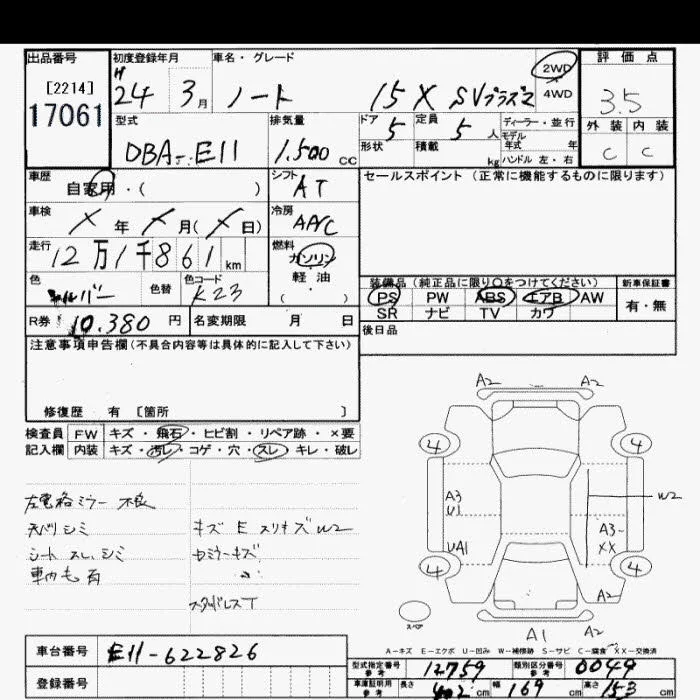 出品番号 初度登録年月 車名・グレード 評価点
[2214] H24年 3月 ノート 15X SVプラズマ 2WD 4WD 3.5
17061
外装 内装
C C
型式 排気量 ドア 定員 ディーラー・並行
DBA-E11 1.500 CC 5 5人 モデル年式 年
形状 積載 kg ハンドル 左・右
車歴 シフト セールスポイント(正常に機能するものに限ります)
自家用・( ) AT
車検 冷房
X年 X月(X日) AAC
走行 燃料
12万1千861km ガソリン
軽油
( )
色 色替 色コード
シルバー K23
装備品(純正品に限り○をつけてください) 新車保証書
PS PW ABS エアB AW 有・無
SR ナビ TV カワ
R券 10.380円 名変期限 月 日 後日品
注意事項申告欄(不具合内容等は具体的に記入して下さい)
修復歴 有 [箇所 ]
検査員 FW キズ・飛石・ヒビ割・リペア跡・×要
記入欄 内装 キズ・汚レ・コゲ・穴・スレ・キレ・破レ
左電格ミラー 不良
天バリ シミ キズ E スリキズ W2
シート スレ、シミ
スタッドレスT
A2 A2
4 4
A3 U1 W2
UA1 A3- XX
4 4
A2
スペア A1 A2
A-キズ E-エクボ U-凹み W-補修跡 S-サビ C-腐食 XX-交換済
車台番号 E11-622826
登録番号
型式指定番号 参考 12759 類別区分番号 参考 0049
車庫証明用 参考 長さ 402cm 幅 169cm 高さ 153cm